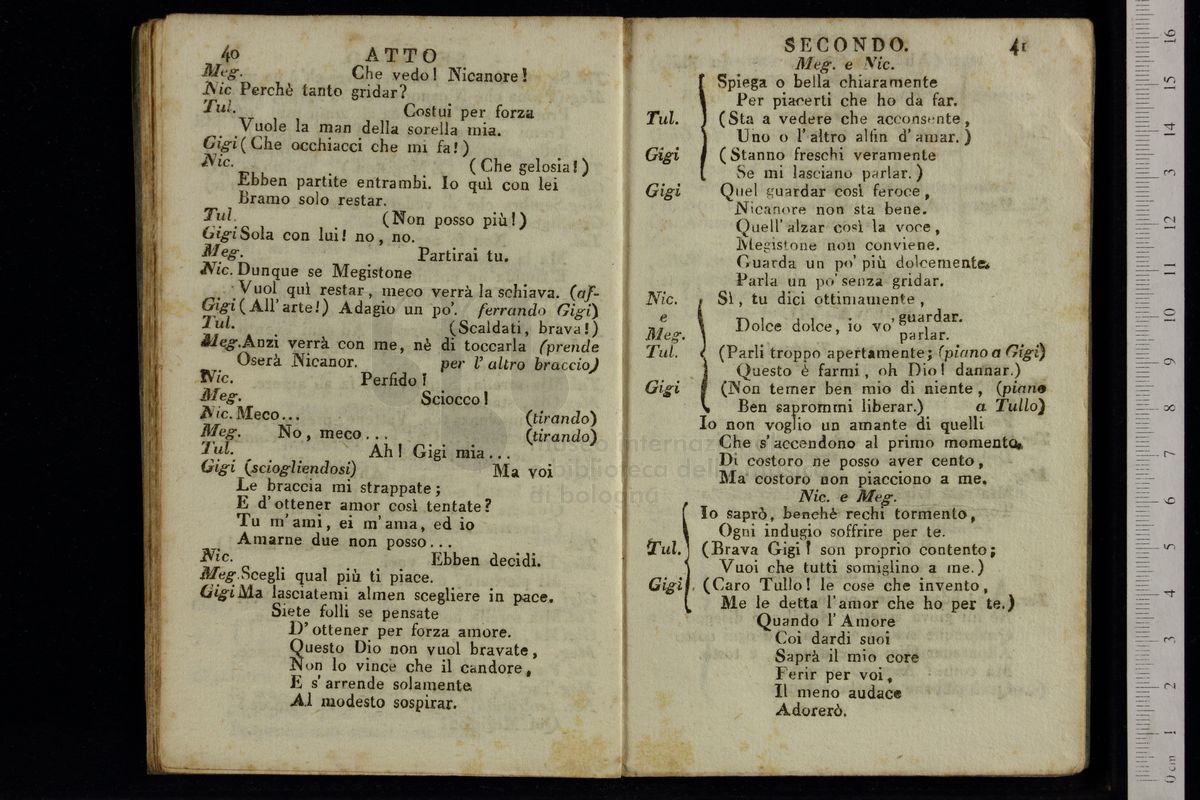 40 ATTO
Meg. Che vedo! Nicanore!
Nic Perchè tanto gridar?
Tul. Costui per forza
Vuole la man della sorella mia.
Gigi (Che occhiacci che mi fa!)
Nic. (Che gelosia!)
Ebben partite entrambi. Io quì con lei
Bramo solo restar.
Tul. (Non posso più!)
Gigi Sola con lui! no, no.
Meg. Partirai tu.
Nic. Dunque se Megistone
Vuol quì restar, meco verrà la schiava. (af-
Gigi (All'arte!) Adagio un po'. ferrando Gigi)
Tul. (Scaldati, brava!)
Meg. Anzi verrà con me, nè di toccarla (prende
Oserà Nicanor. per l'altro braccio)
Nic. Perfido!
Meg. Sciocco!
Nic. Meco... (tirando)
Meg. No, meco... (tirando)
Tul. Ah! Gigi mia...
Gigi (sciogliendosi) Ma voi
Le braccia mi strappate;
E d'ottener amor così tentate?
Tu m'ami, ei m'ama, ed io
Amarne due non posso...
Nic. Ebben decidi.
Meg. Scegli qual più ti piace.
Gigi Ma lasciatemi almen scegliere in pace.
Siete folli se pensate
D'ottener per forza amore.
Questo Dio non vuol bravate,
Non lo vince che il candore,
E s'arrende solamente
Al modesto sospirar.
SECONDO. 41
Meg. e Nic.
Spiega o bella chiaramente
Per piacerti che ho da far.
Tul. (Sta a vedere che acconsente,
Uno o l'altro alfin d'amar.)
Gigi (Stanno freschi veramente
Se mi lasciano parlar.)
Gigi Quel guardar così feroce,
Nicanore non sta bene.
Quell'alzar così la voce,
Megistone non conviene.
Guarda un po' più dolcemente,
Parla un po' senza gridar.
Nic. Sì, tu dici ottimamente,
e Dolce dolce, io vo' guardar.
Meg. parlar.
Tul. (Parli troppo apertamente; (piano a Gigi)
Questo è farmi, oh Dio! dannar.)
Gigi (Non temer ben mio di niente, (piano
Ben saprommi liberar.) a Tullo)
Io non voglio un amante di quelli
Che s'accendono al primo momento,
Di costoro ne posso aver cento,
Ma costoro non piacciono a me.
Nic. e Meg.
Io saprò, benchè rechi tormento,
Ogni indugio soffrire per te.
Tul. (Brava Gigi! son proprio contento;
Vuoi che tutti somiglino a me.)
Gigi (Caro Tullo! le cose che invento,
Me le detta l'amor che ho per te.)
Quando l'Amore
Coi dardi suoi
Saprà il mio core
Ferir per voi,
Il meno audace
Adorerò.
museo internaz
biblioteca della
di bologna
0 cm 1 2 3 4 5 6 7 8 9 10 11 12 13 14 15 16